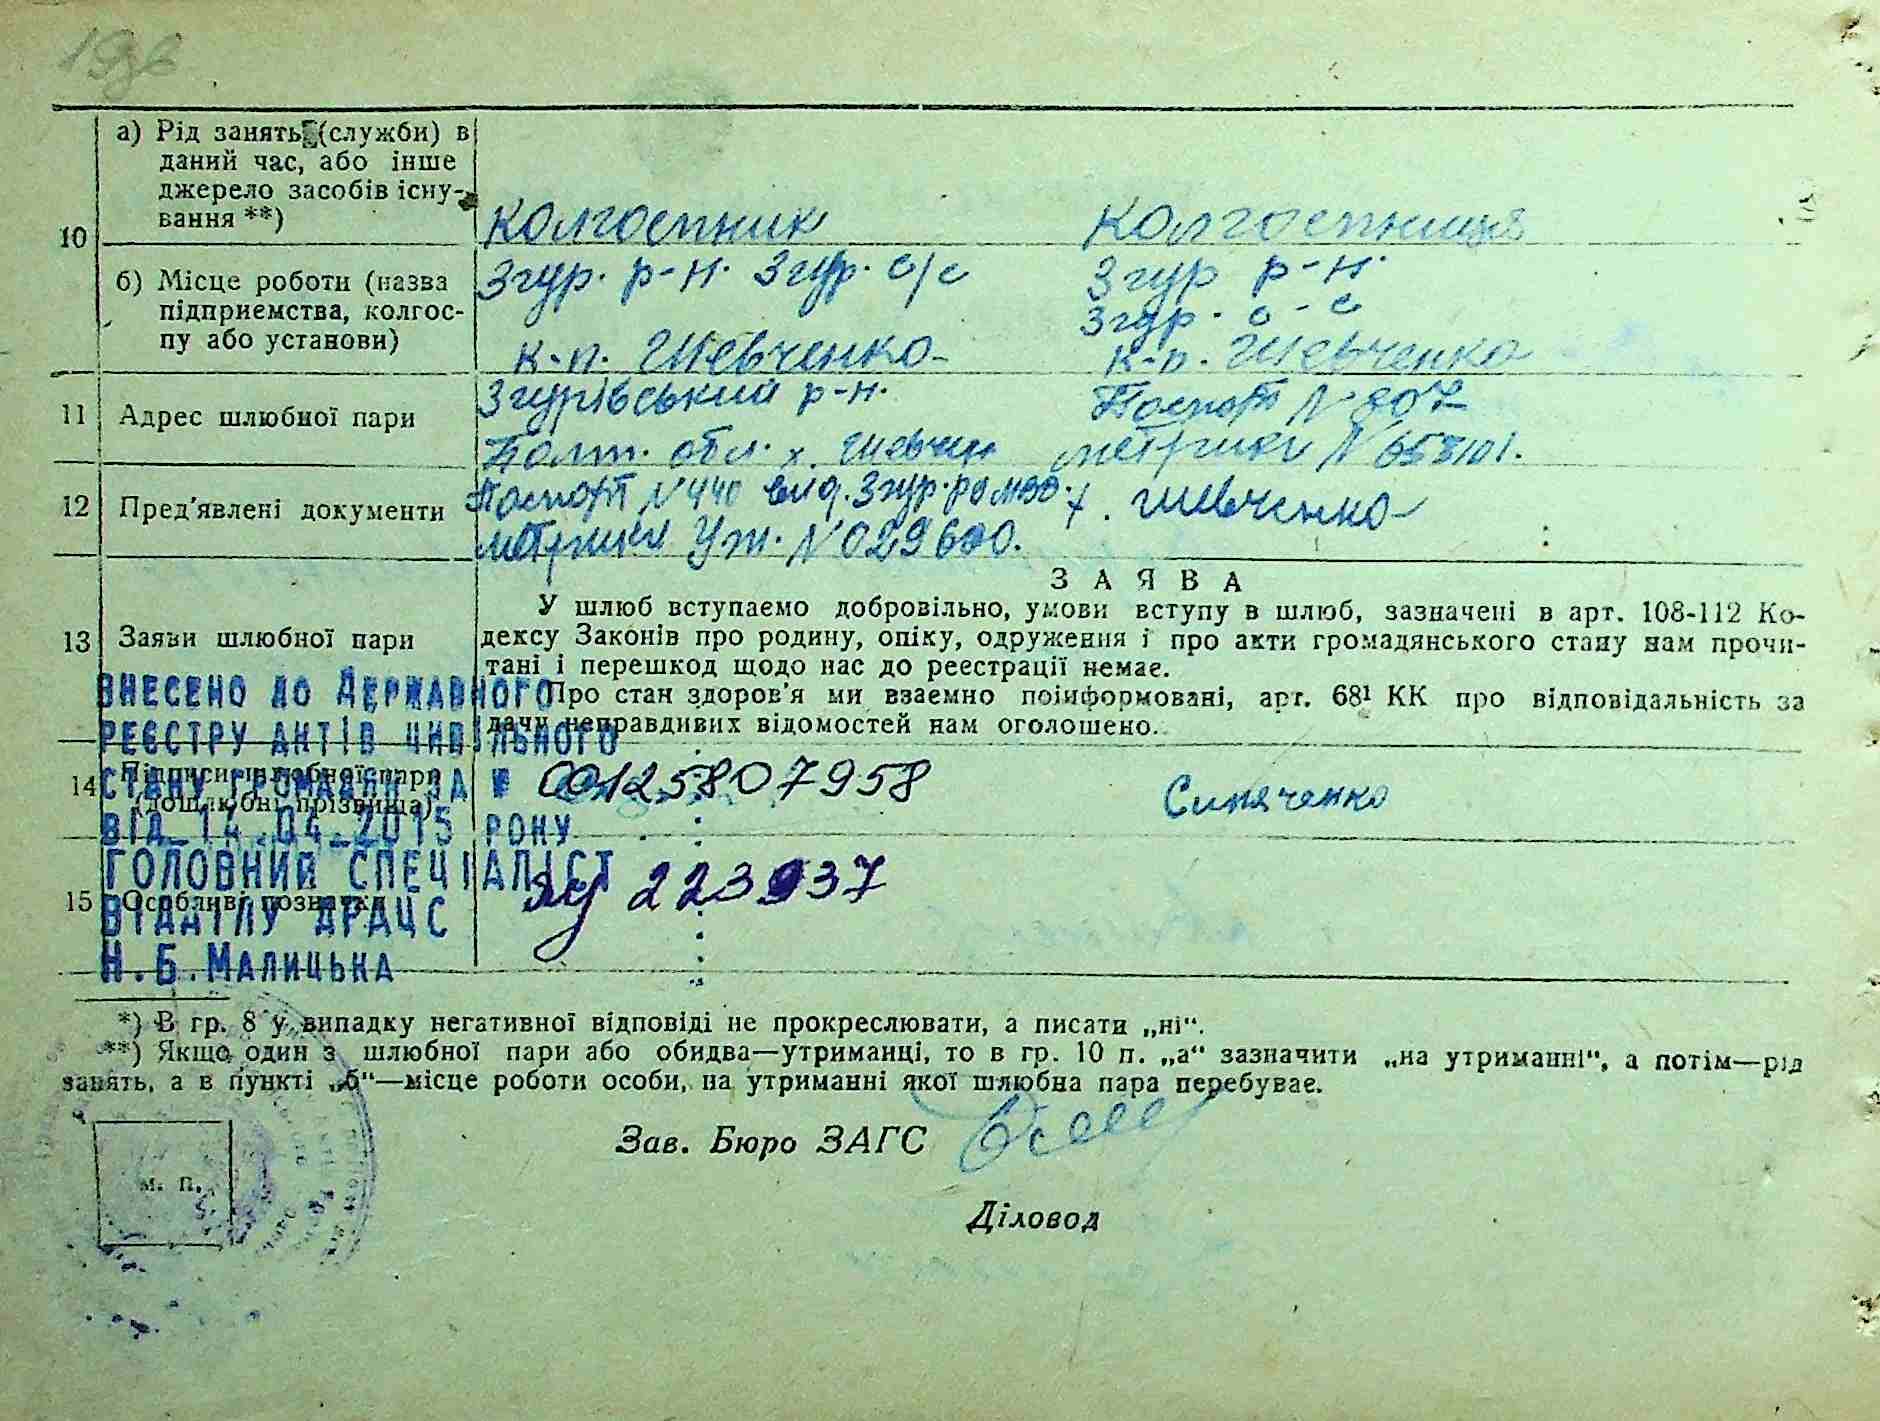 10
а) Рід занять (служби) в
даний час, або інше
джерело засобів існу-
вання **)
Колгоспник
Колгоспниця
б) Місце роботи (назва
підприємства, колгос-
пу або установи)
Згур. р-н. Згур. с/с
к-п. Шевченко
Згур р-н.
Згур. с-с
к-п. Шевченко
11 Адрес шлюбної пари
Згурівський р-н.
Полт. обл. х. Шевчен
Паспорт N 807
метрики N 658101.
х. Шевченко
12 Пред'явлені документи
Паспорт N 440 вид. Згур.
метрики Уж. N 029600.
13 Заяви шлюбної пари
ЗАЯВА
У шлюб вступаємо добровільно, умови вступу в шлюб, зазначені в арт. 108-112 Ко-
дексу Законів про родину, опіку, одруження і про акти громадянського стану нам прочи-
тані і перешкод щодо нас до реєстрації немає.
Про стан здоров'я ми взаємно поінформовані, арт. 68¹ КК про відповідальність за
дачу неправдивих відомостей нам оголошено.
14 Підписи шлюбної пари
(дошлюбні прізвища)
Синяченко
15 Особливі позначки
ВНЕСЕНО ДО ДЕРЖАВНОГО
РЕЄСТРУ АКТІВ ЦИВІЛЬНОГО
СТАНУ ГРОМАДЯН ЗА № 00125807958
ВІД 14.04.2015 РОКУ
ГОЛОВНИЙ СПЕЦІАЛІСТ
ВІДДІЛУ ДРАЦС
Н.Б.МАЛИЦЬКА
223937
*) В гр. 8 у випадку негативної відповіді не прокреслювати, а писати „ні“.
**) Якщо один з шлюбної пари або обидва—утриманці, то в гр. 10 п. „а“ зазначити „на утриманні“, а потім—рід
занять, а в пункті „б“—місце роботи особи, на утриманні якої шлюбна пара перебуває.
Зав. Бюро ЗАГС
м. п.
Діловод